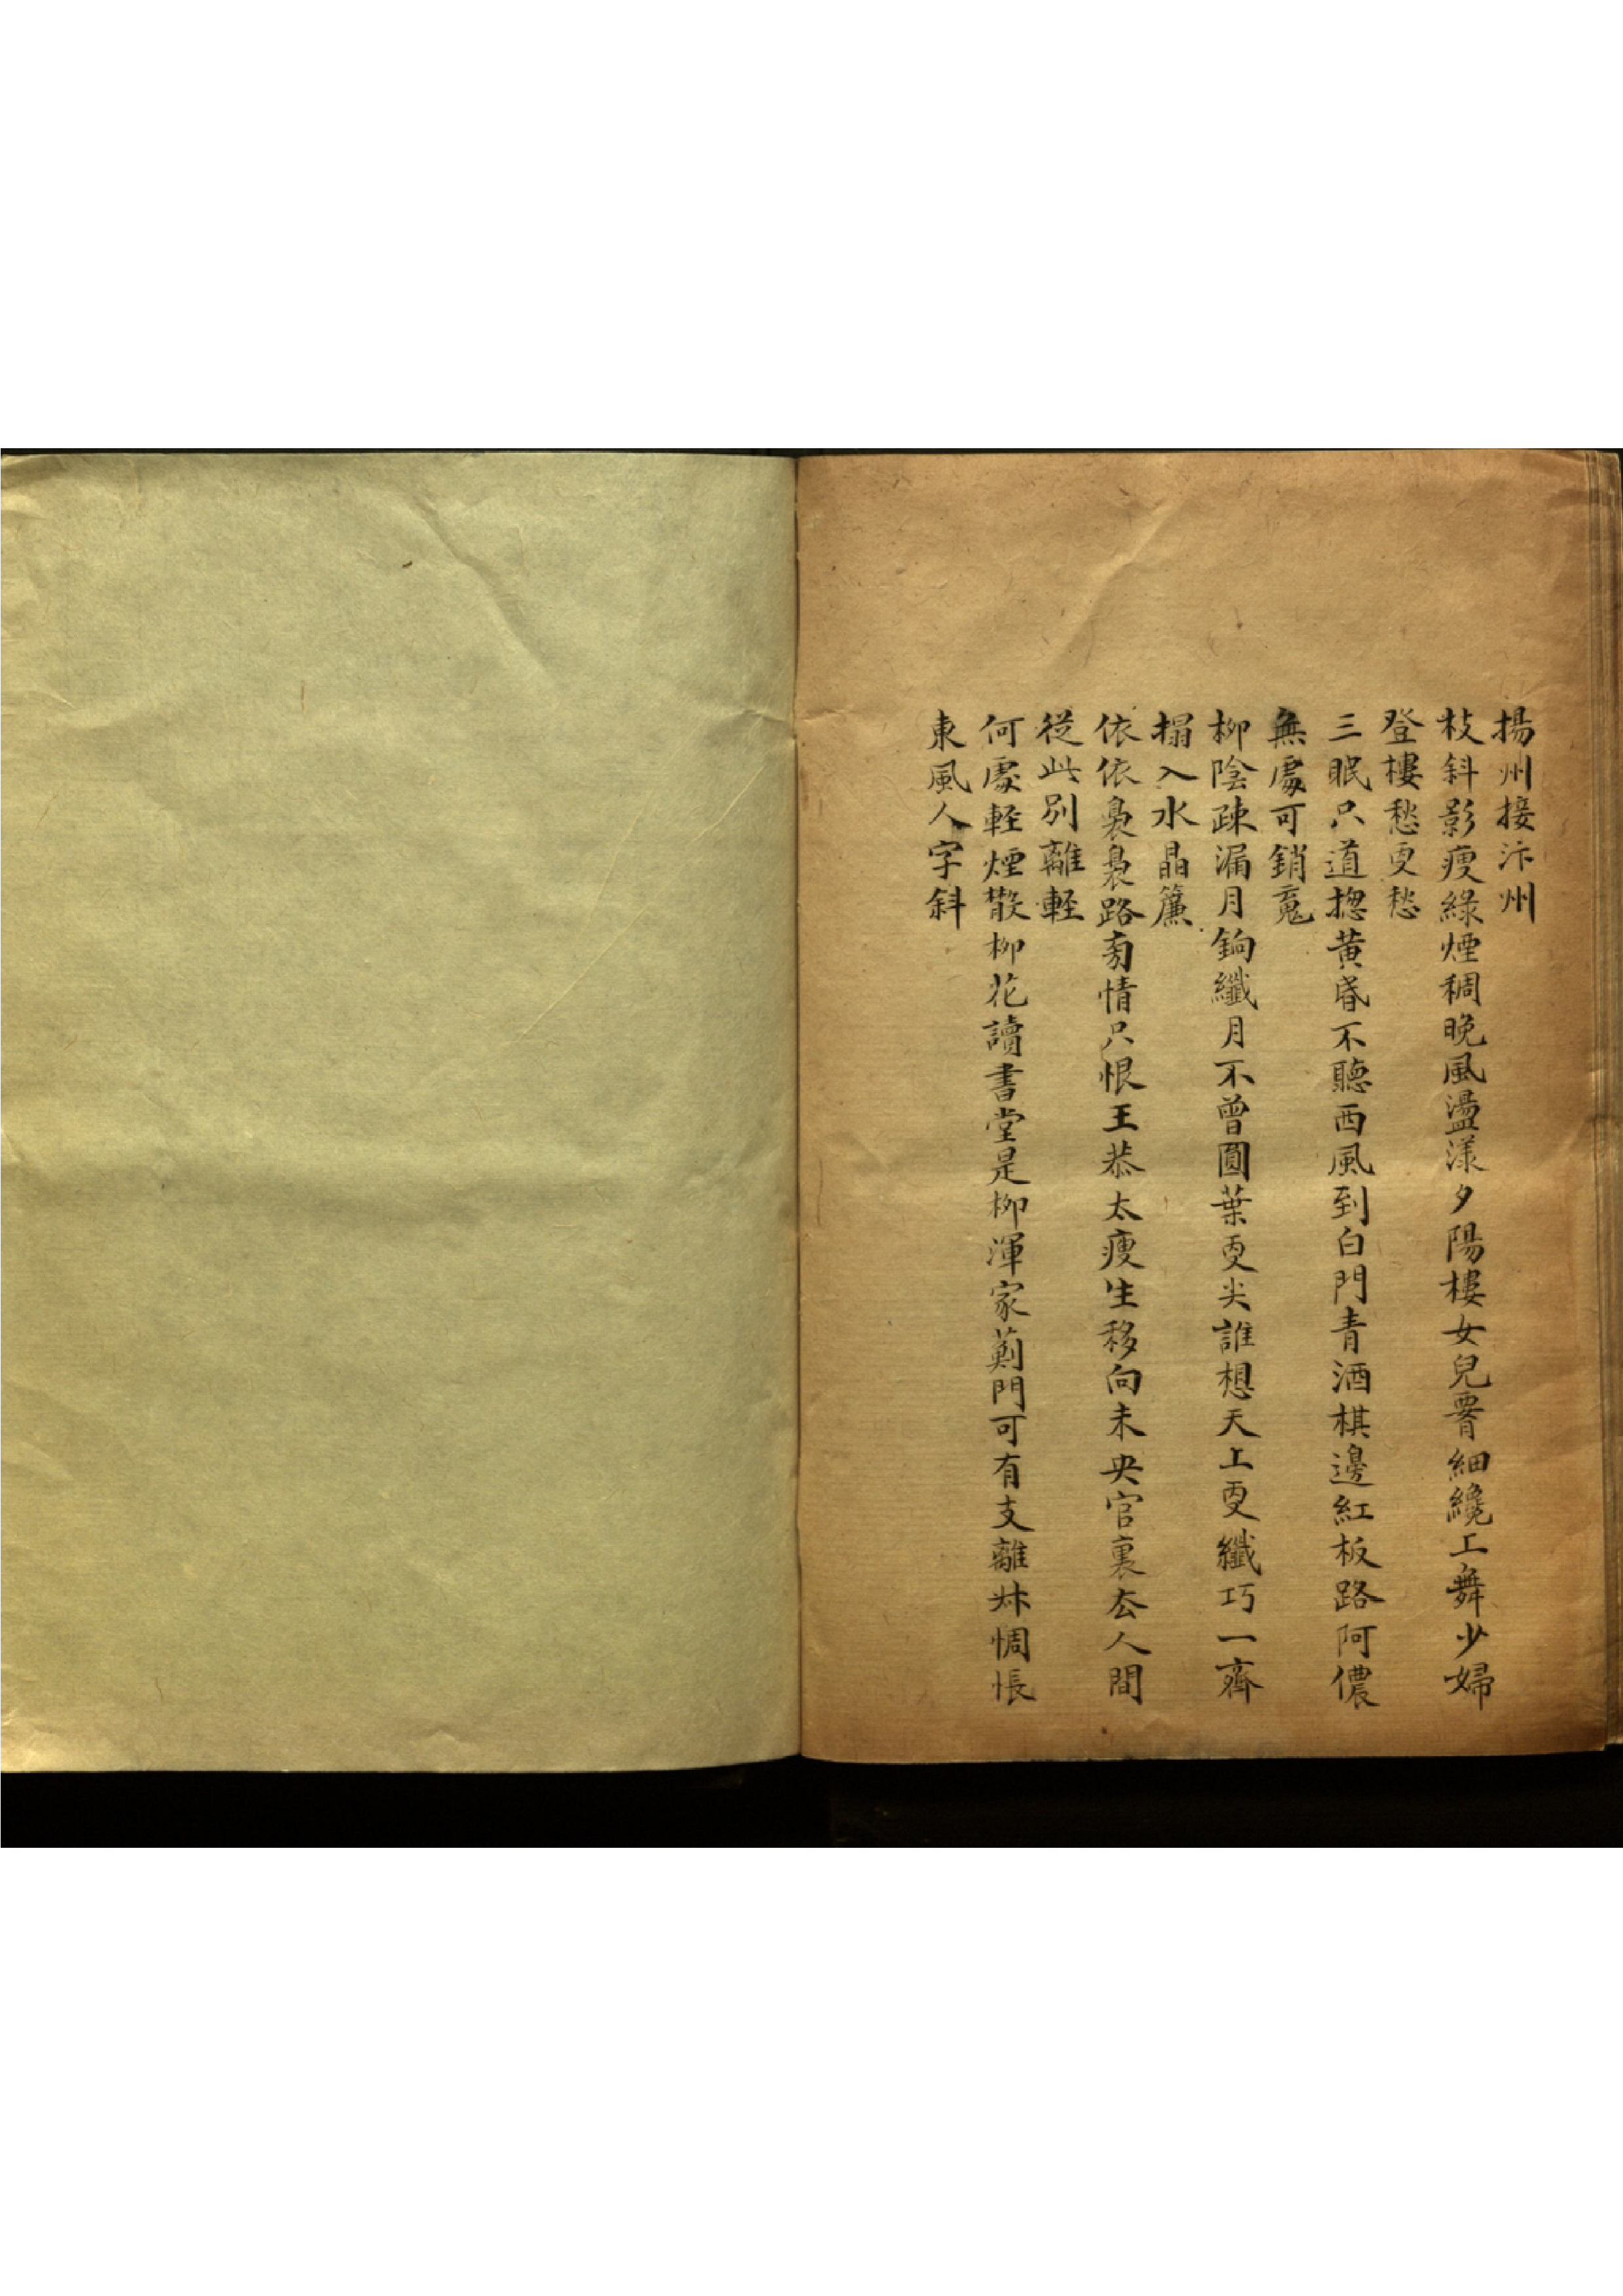 揚州接汴州
枝斜影瘦綠煙稠晚風盪漾夕陽樓女兒要細纔工舞少婦
登樓愁更愁
三眠只道揔黃昏不聽西風到白門青酒棋邊紅板路阿儂
無處可銷䰟
柳陰疎漏月鉤纖月不曾圓葉更尖誰想天上更纖巧一齊
搨入水晶簾
依依裊裊路旁情只恨王恭太瘦生移向未央官裏去人間
從此別離輕
何處輕煙散柳花讀書堂是柳渾家薊門可有支離姝惆悵
東風人字斜